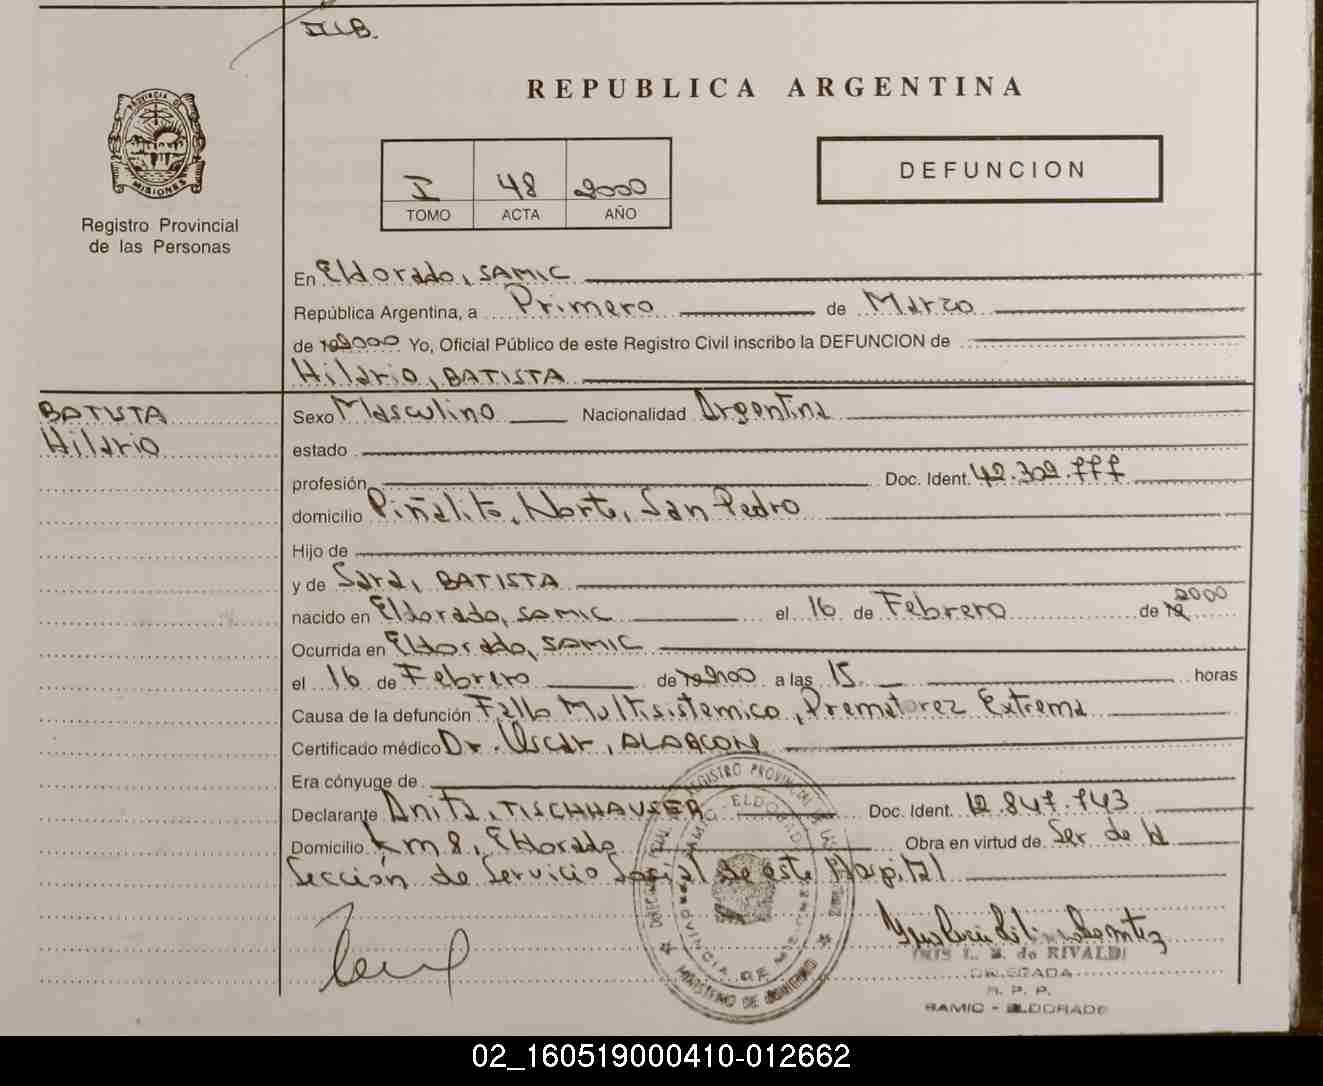 REPUBLICA ARGENTINA
PROVINCIA DE MISIONES
Registro Provincial
de las Personas
I 48 2000
TOMO ACTA AÑO
DEFUNCION
En Eldorado, SAMIC
República Argentina, a Primero de Marzo
de 2000 Yo, Oficial Público de este Registro Civil inscribo la DEFUNCION de
Hilario, BATISTA
BATISTA
Hilario
Sexo Masculino Nacionalidad Argentina
estado
profesión Doc. Ident. 42.302.777
domicilio Piñalito, Norte, San Pedro
Hijo de
y de Sara, BATISTA
nacido en Eldorado, SAMIC el 16 de Febrero de 2000
Ocurrida en Eldorado, SAMIC
el 16 de Febrero de 2000 a las 15 horas
Causa de la defunción Fallo Multisistemico, Prematurez Extrema
Certificado médico Dr. Oscar, ALARCON
Era cónyuge de
Declarante Anita, TISCHHAUSER Doc. Ident. 12.847.743
Domicilio km 8, Eldorado Obra en virtud de Ser de la
Sección de Servicio Social de este Hospital
REGISTRO PROVINCIAL DE LAS
SAMIC - ELDORADO
PROVINCIA DE MISIONES
MINISTERIO DE GOBIERNO
L. B. de RIVALDI
DELEGADA
R. P. P.
SAMIC - ELDORADO
02_160519000410-012662